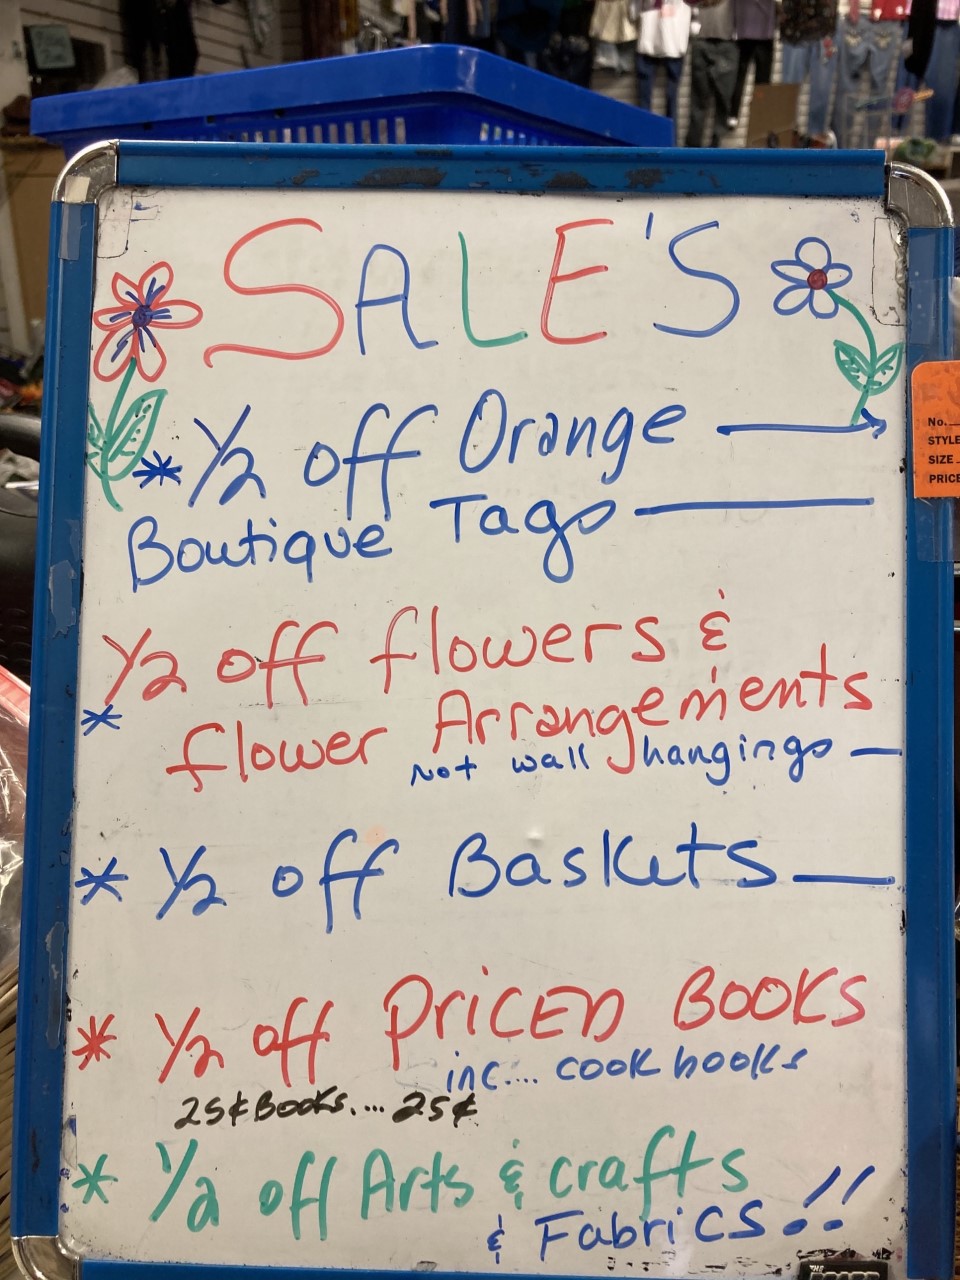 SALE'S
* 1/2 off Orange
Boutique Tags
No.
STYLE
SIZE
PRICE
1/2 off flowers &
* flower Arrangements
Not wall hangings
* 1/2 off Baskets
* 1/2 off PRiCED BOOKS
inc.... cook books
25¢ Books.... 25¢
* 1/2 off Arts & crafts
& FabriCS!!
THE